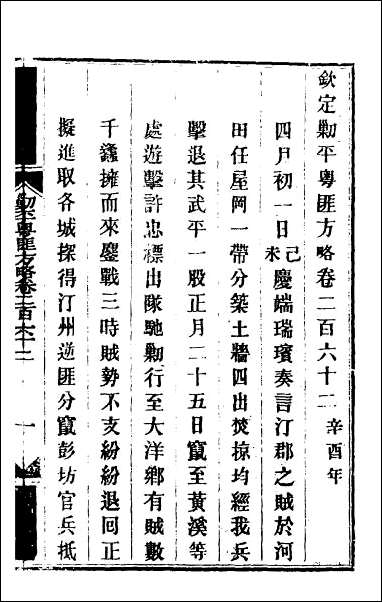 欽定勦平粵匪方略卷二百六十二 辛酉年
四月初一日己未慶端瑞璸奏言汀郡之賊於河
田任屋岡一帶分築土牆四出焚掠均經我兵
擊退其武平一股正月二十五日竄至黃溪等
處遊擊許忠標出隊馳勦行至大洋鄉有賊數
千蠭擁而來鏖戰三時賊勢不支紛紛退回正
擬進取各城探得汀州逆匪分竄彭坊官兵抵
勦平粵匪方略卷二百六十二 一